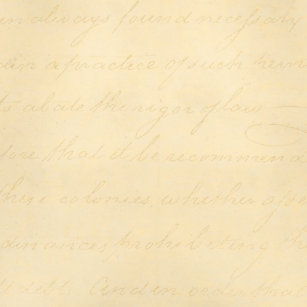 always found necessary
a practice of such
to abate the rigor of law
that it be recommend
these colonies, whether
prohibiting
And in order that